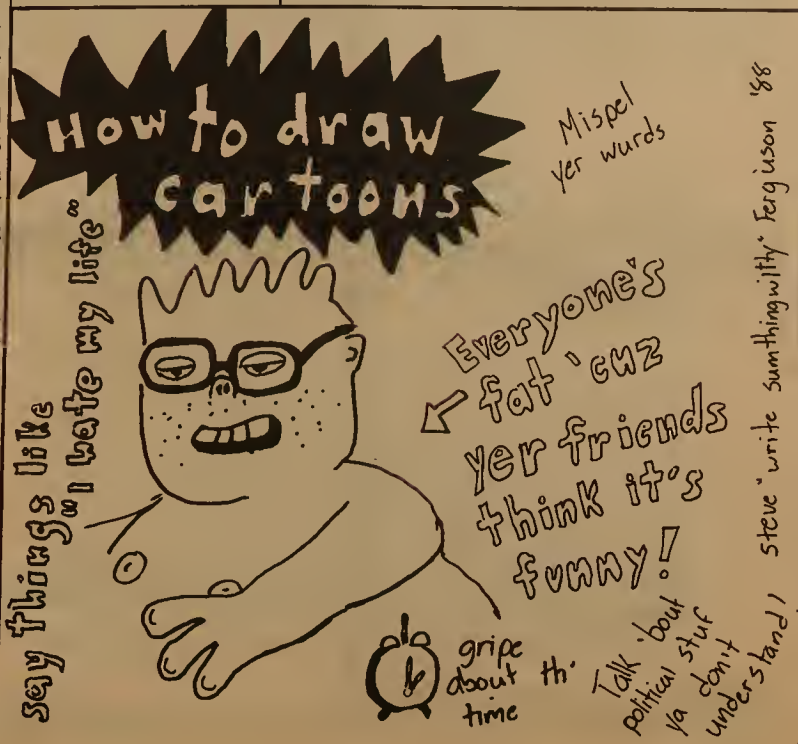 How to draw
cartoons
Mispel
yer wurds
say things like
"I hate my life"
Everyone's
fat 'cuz
yer friends
think it's
funny!
gripe
about th'
time
Talk 'bout
political stuf
ya don't
understand!
steve "write sumthingwilthy" Ferguson '88